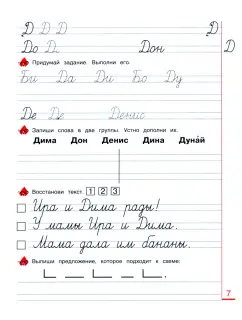 Д Д Д Д
До Д Дон Д
Придумай задание. Выполни его.
Би Да Ди Бо Ду
Де Де Денис
Запиши слова в две группы. Устно дополни их.
Дима Дон Денис Дина Дунáй
Восстанови текст. 1 2 3
Ира и Дима рады!
У мамы Ира и Дима.
Мама дала им бананы.
Выпиши предложение, которое подходит к схеме:
7